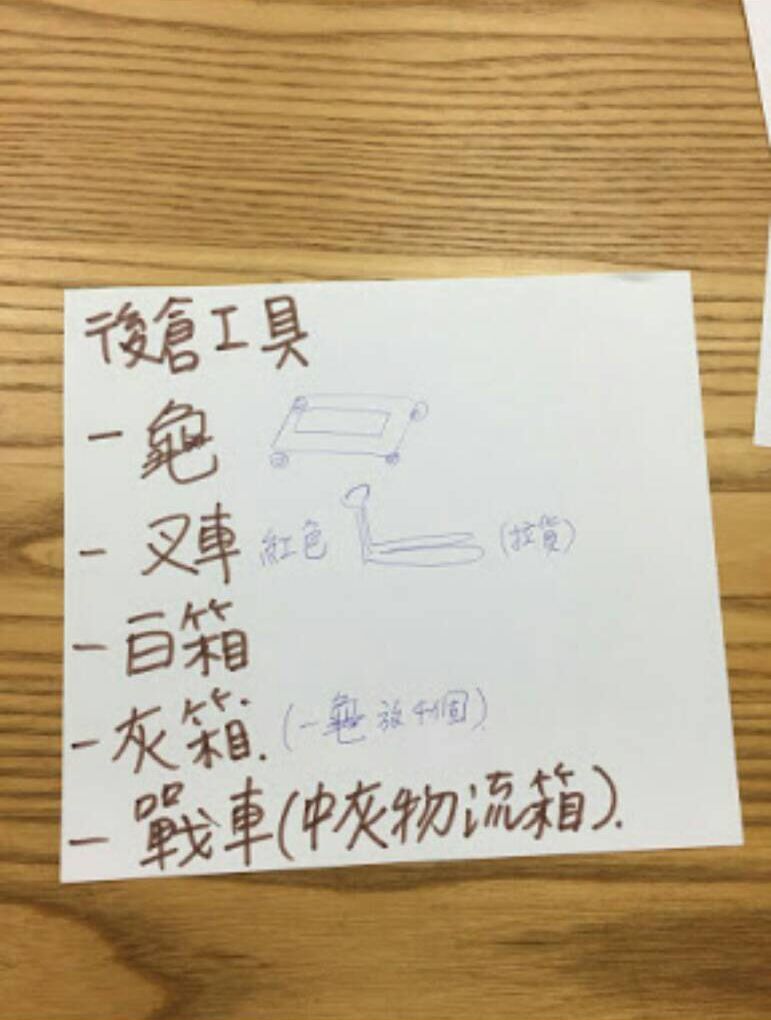 後倉工具
- 龜
- 叉車 紅色 (拉貨)
- 白箱
- 灰箱. (一龜放4個)
- 戰車(中灰物流箱).